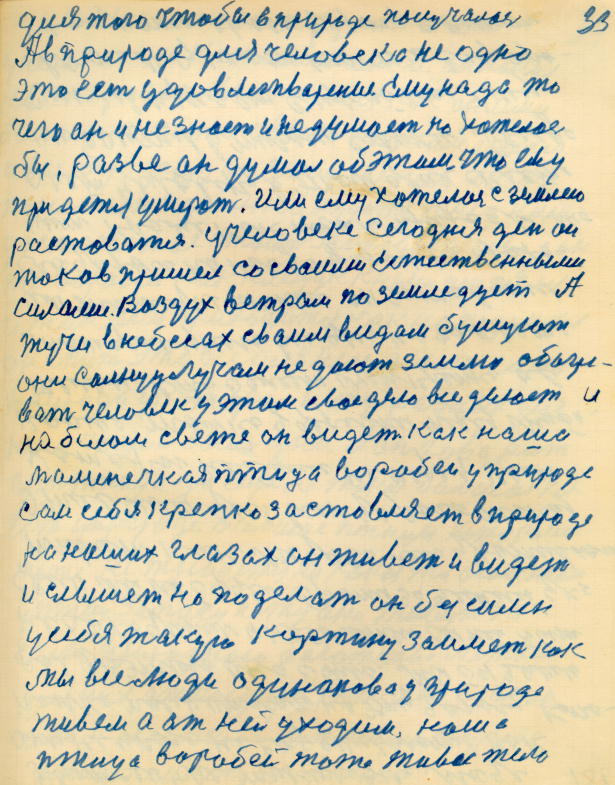 для того чтобы в природе получалос 33
А в природе для человека не одно
это ест удовлетварение ему нада то
чего он и не знает и не думает но хотелос
бы, разве он думал об этом что ему
придется умират. Или ему хотелос с землею
растоватся. у человека сегодня ден он
таков пришел со сваими естественными
силами. Воздух ветрам по земле дует А
тучи в небесах сваим видам бушуют
они солнцу лучам не дают землю обагр-
ват человек у этом свое дело все делает и
на белом свете он видет. Как наша
малинечкая птица воробей у природе
сам себя крепко заставляет в природе
на наших глазах он живет и видет
и слышет но поделат он бессилен
у себя такую картину заимет как
мы все люди одинакова у природе
живем а от ней уходим, наша
птица воробей тоже живое тело